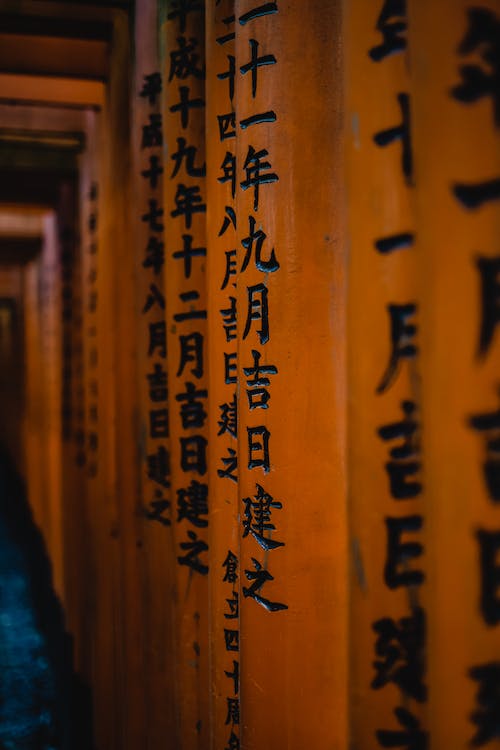 年一月吉日建
年十一月吉日建之
二十一年九月吉日建之
二十四年八月吉日建之 創立四十周
平成十九年十二月吉日建之
平成十七年八月吉日建之